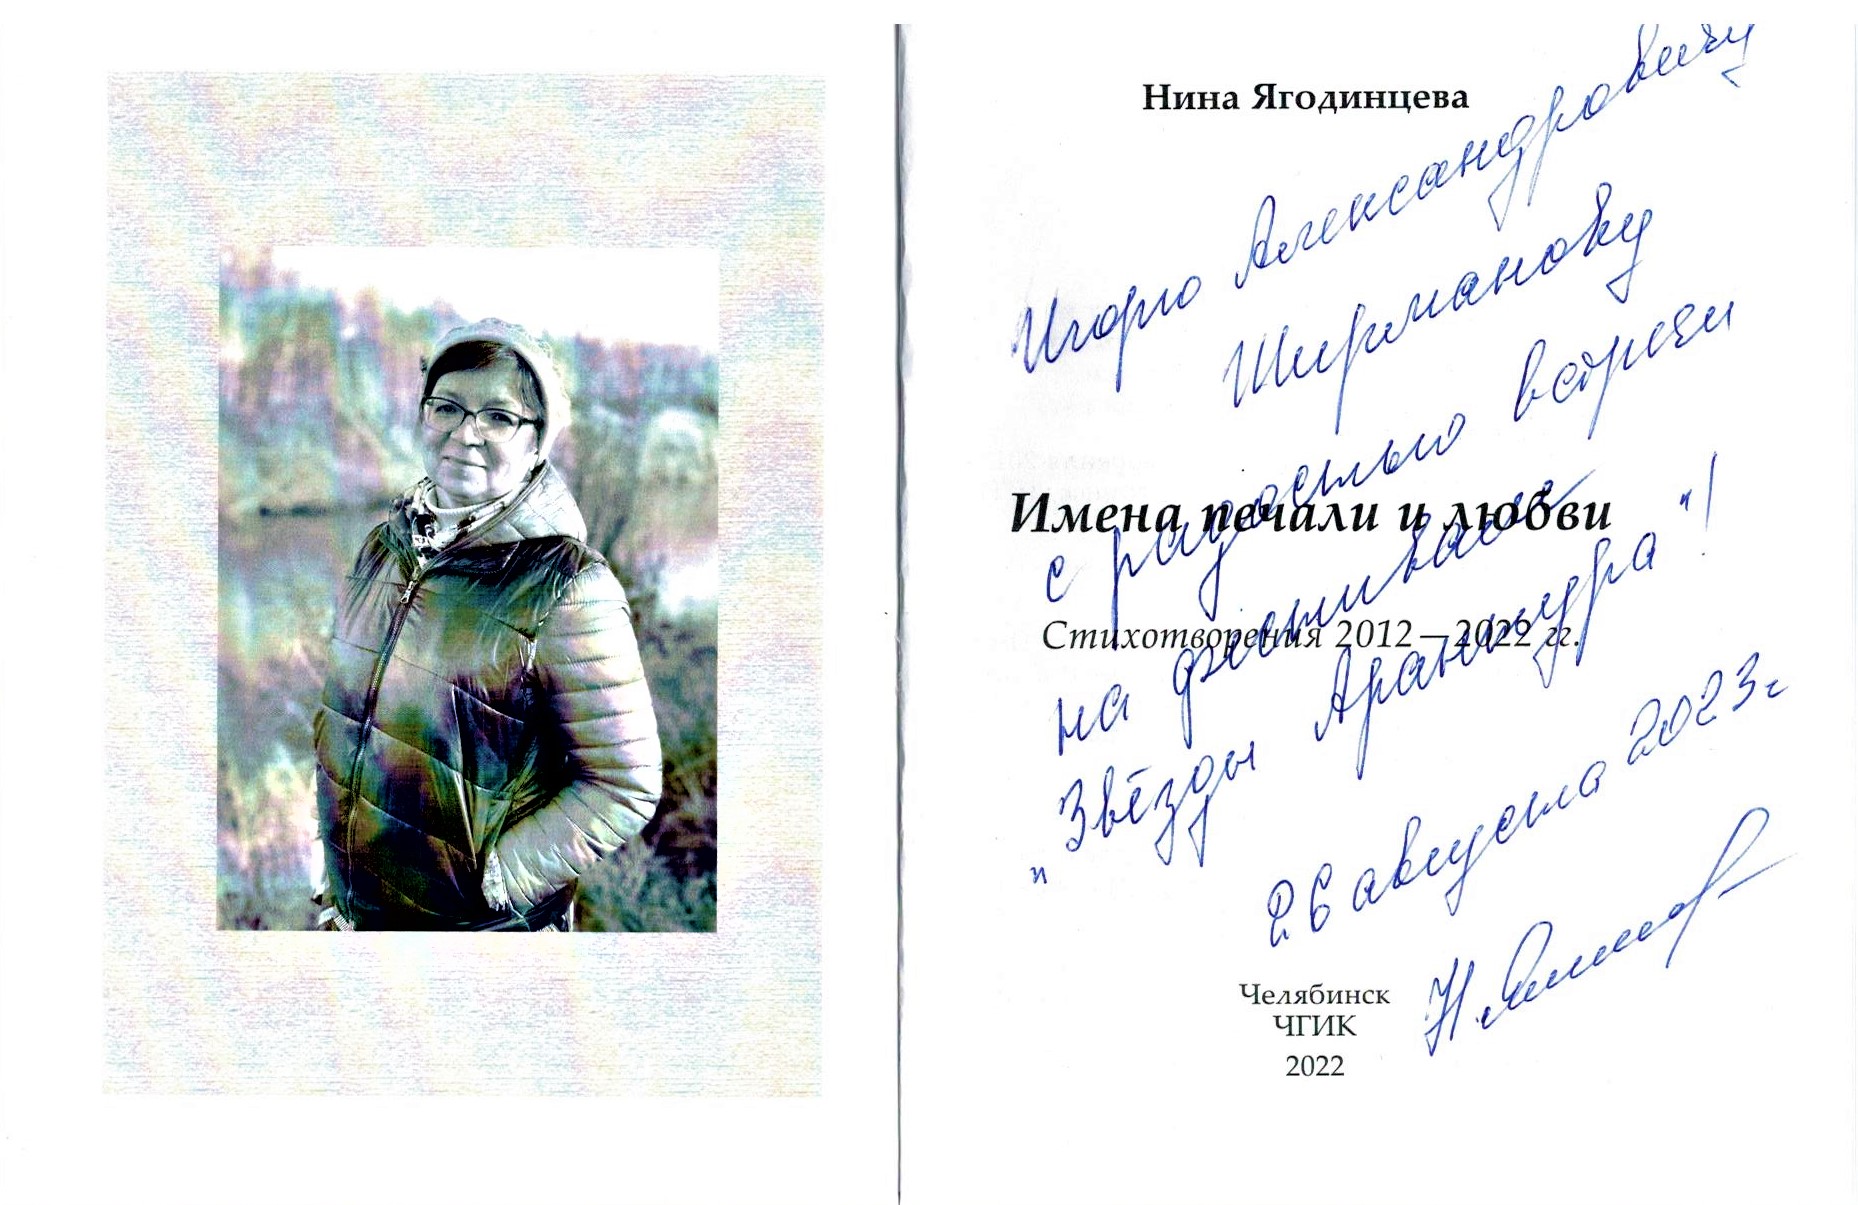 Нина Ягодинцева
Игорю Александровичу
Ширманову
с радостью встречи
Имена печали и любви
на фестивале
Стихотворения 2012—2022 гг.
"Звёзды Арантура"!
26 августа 2023 г
Челябинск
ЧГИК
2022